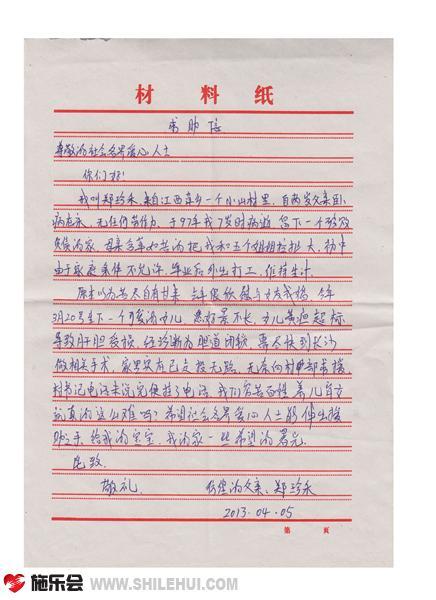 材料纸
求助信
尊敬的社会各界爱心人士
你们好!
我叫郑珍禾,来自江西萍乡一个小山村里,自两岁父亲因
病卧床,无任何劳作力,于97年我7岁时病逝,留下一个
负债的家,母亲含辛如苦的把我和五个姐姐拉扯大,初中
由于家庭条件不允许,毕业后外出打工,维持生计。
原本以为苦尽自有甘来,去年很欣慰与女友成婚,今年
3月20号生下一个可爱的女儿,患好景不长,女儿黄疸超标
导致肝胆受损,经诊断为胆道闭锁,要尽快到长沙
做相关手术,家里实在已走投无路,无奈向村干部求援,
村书记电话未说完便挂了电话,我们穷苦百姓养儿育女
就真的这么难吗?希望社会各界爱心人士能伸出援
助之手,给我的宝宝,我的家一些希望的曙光。
此致
敬礼
的父亲:郑珍禾
2013.04.05
第 页
施乐会 WWW.SHILEHUI.COM